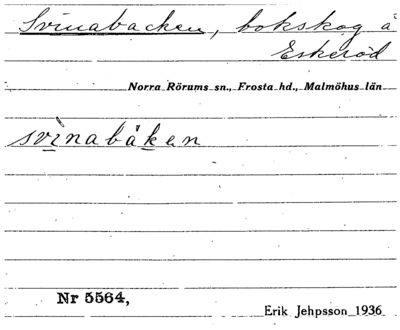 Svinabacken, bokskog å
Eskeröd
Norra Rörums sn., Frosta hd., Malmöhus län
svìnabåken
Nr 5564,
Erik Jehpsson 1936